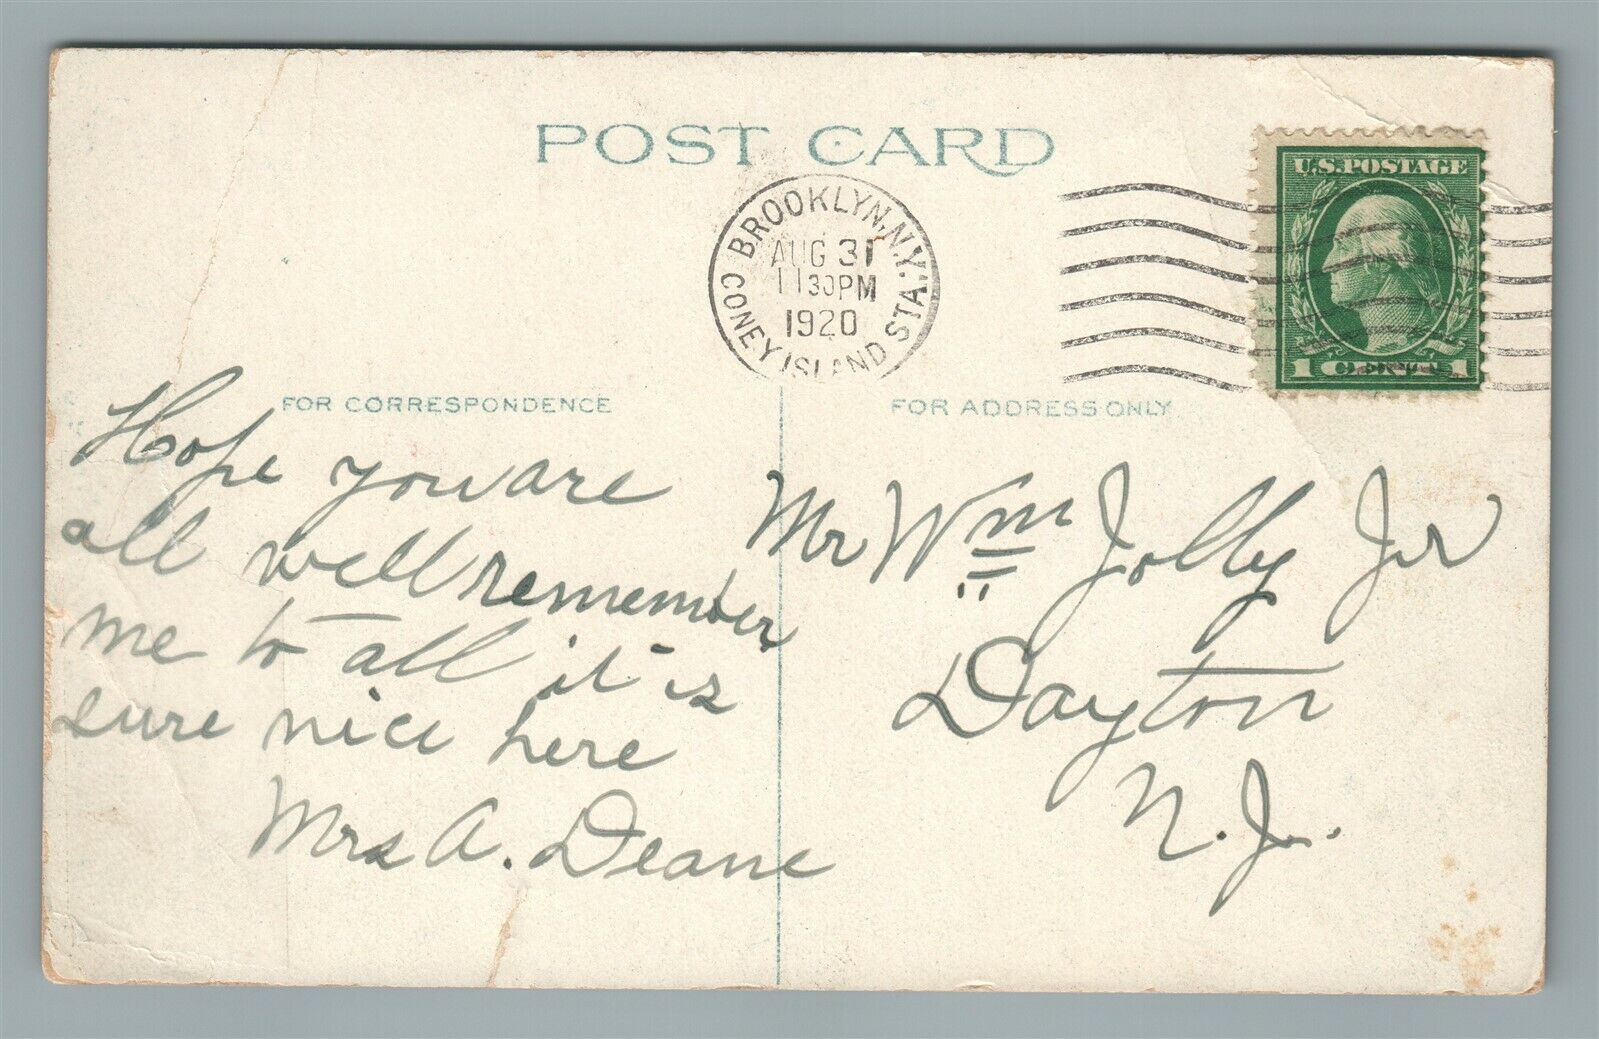 POST CARD
BROOKLYN, N.Y.
AUG 31
11 30 PM
1920
CONEY ISLAND STA.
U.S. POSTAGE
1 CENT 1
FOR CORRESPONDENCE
FOR ADDRESS ONLY
Hope you are
all well remember
me to all it is
sure nice here
Mrs A. Deane
Mr Wm Jolly Jr
Dayton
N. J.